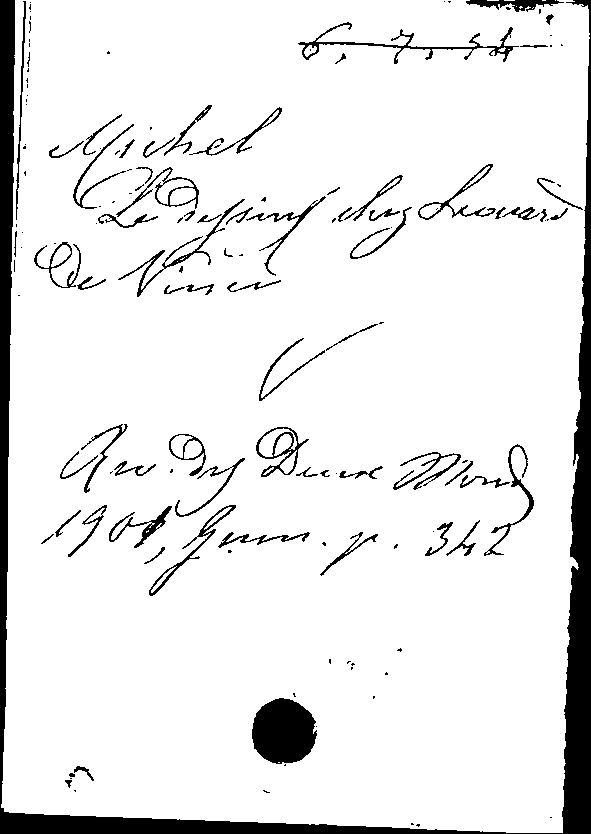 6. 7. 54
Michel
Le dessin chez Leonard
de Vinci
Rev. des Deux Mond
1901, p. 342